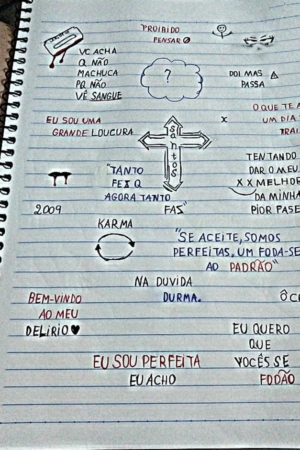 PROIBIDO
PENSAR
VC ACHA
Q NÃO
MACHUCA
PQ NÃO
VÊ SANGUE
?
DOI MAS
PASSA
O QUE TE
UM DIA
EU SOU UMA
GRANDE LOUCURA
santos
x
TENTANDO
DAR O MEU
X X MELHOR
DA MINHA
PIOR FASE
"TANTO
FEZ Q
AGORA TANTO
FAZ"
2009
KARMA
"SE ACEITE, SOMOS
PERFEITAS. UM FODA-SE
AO PADRÃO"
NA DUVIDA
DURMA.
BEM-VINDO
AO MEU
DELÍRIO
EU QUERO
QUE
VOCÊS SE
FODÃO
EU SOU PERFEITA
EU ACHO